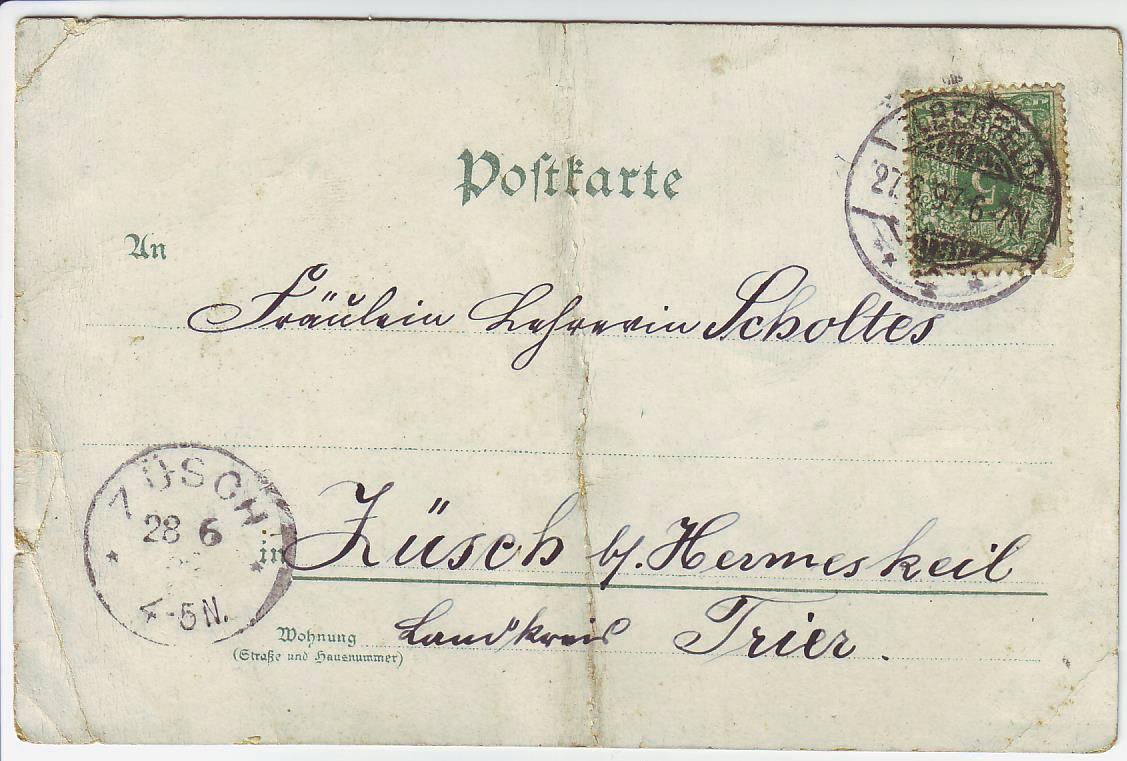 Postkarte
ELBERFELD
27.6.97.6-7N.
5
An
Fräulein Lehrerin Scholtes
ZÜSCH
28 6
4-5N.
in Züsch b/. Hermeskeil
Wohnung Landkreis Trier.
(Straße und Hausnummer)